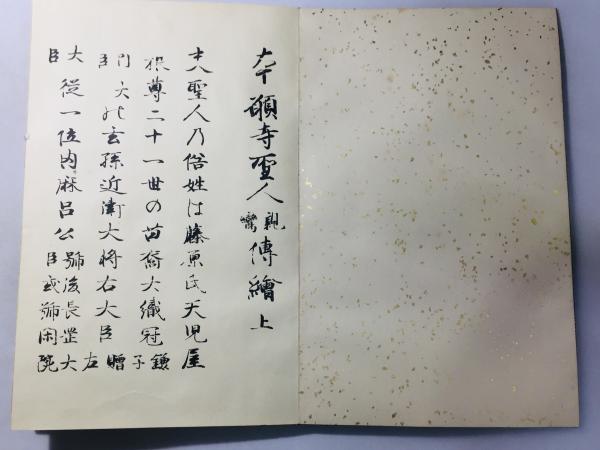 本願寺聖人親鸞傳繪 上
夫聖人乃俗姓は藤原氏天児屋
根尊二十一世の苗裔大織冠鎌子
内大臣の玄孫近衛大将右大臣贈左
大臣従一位内麻呂公号後長岡大臣或号閑院